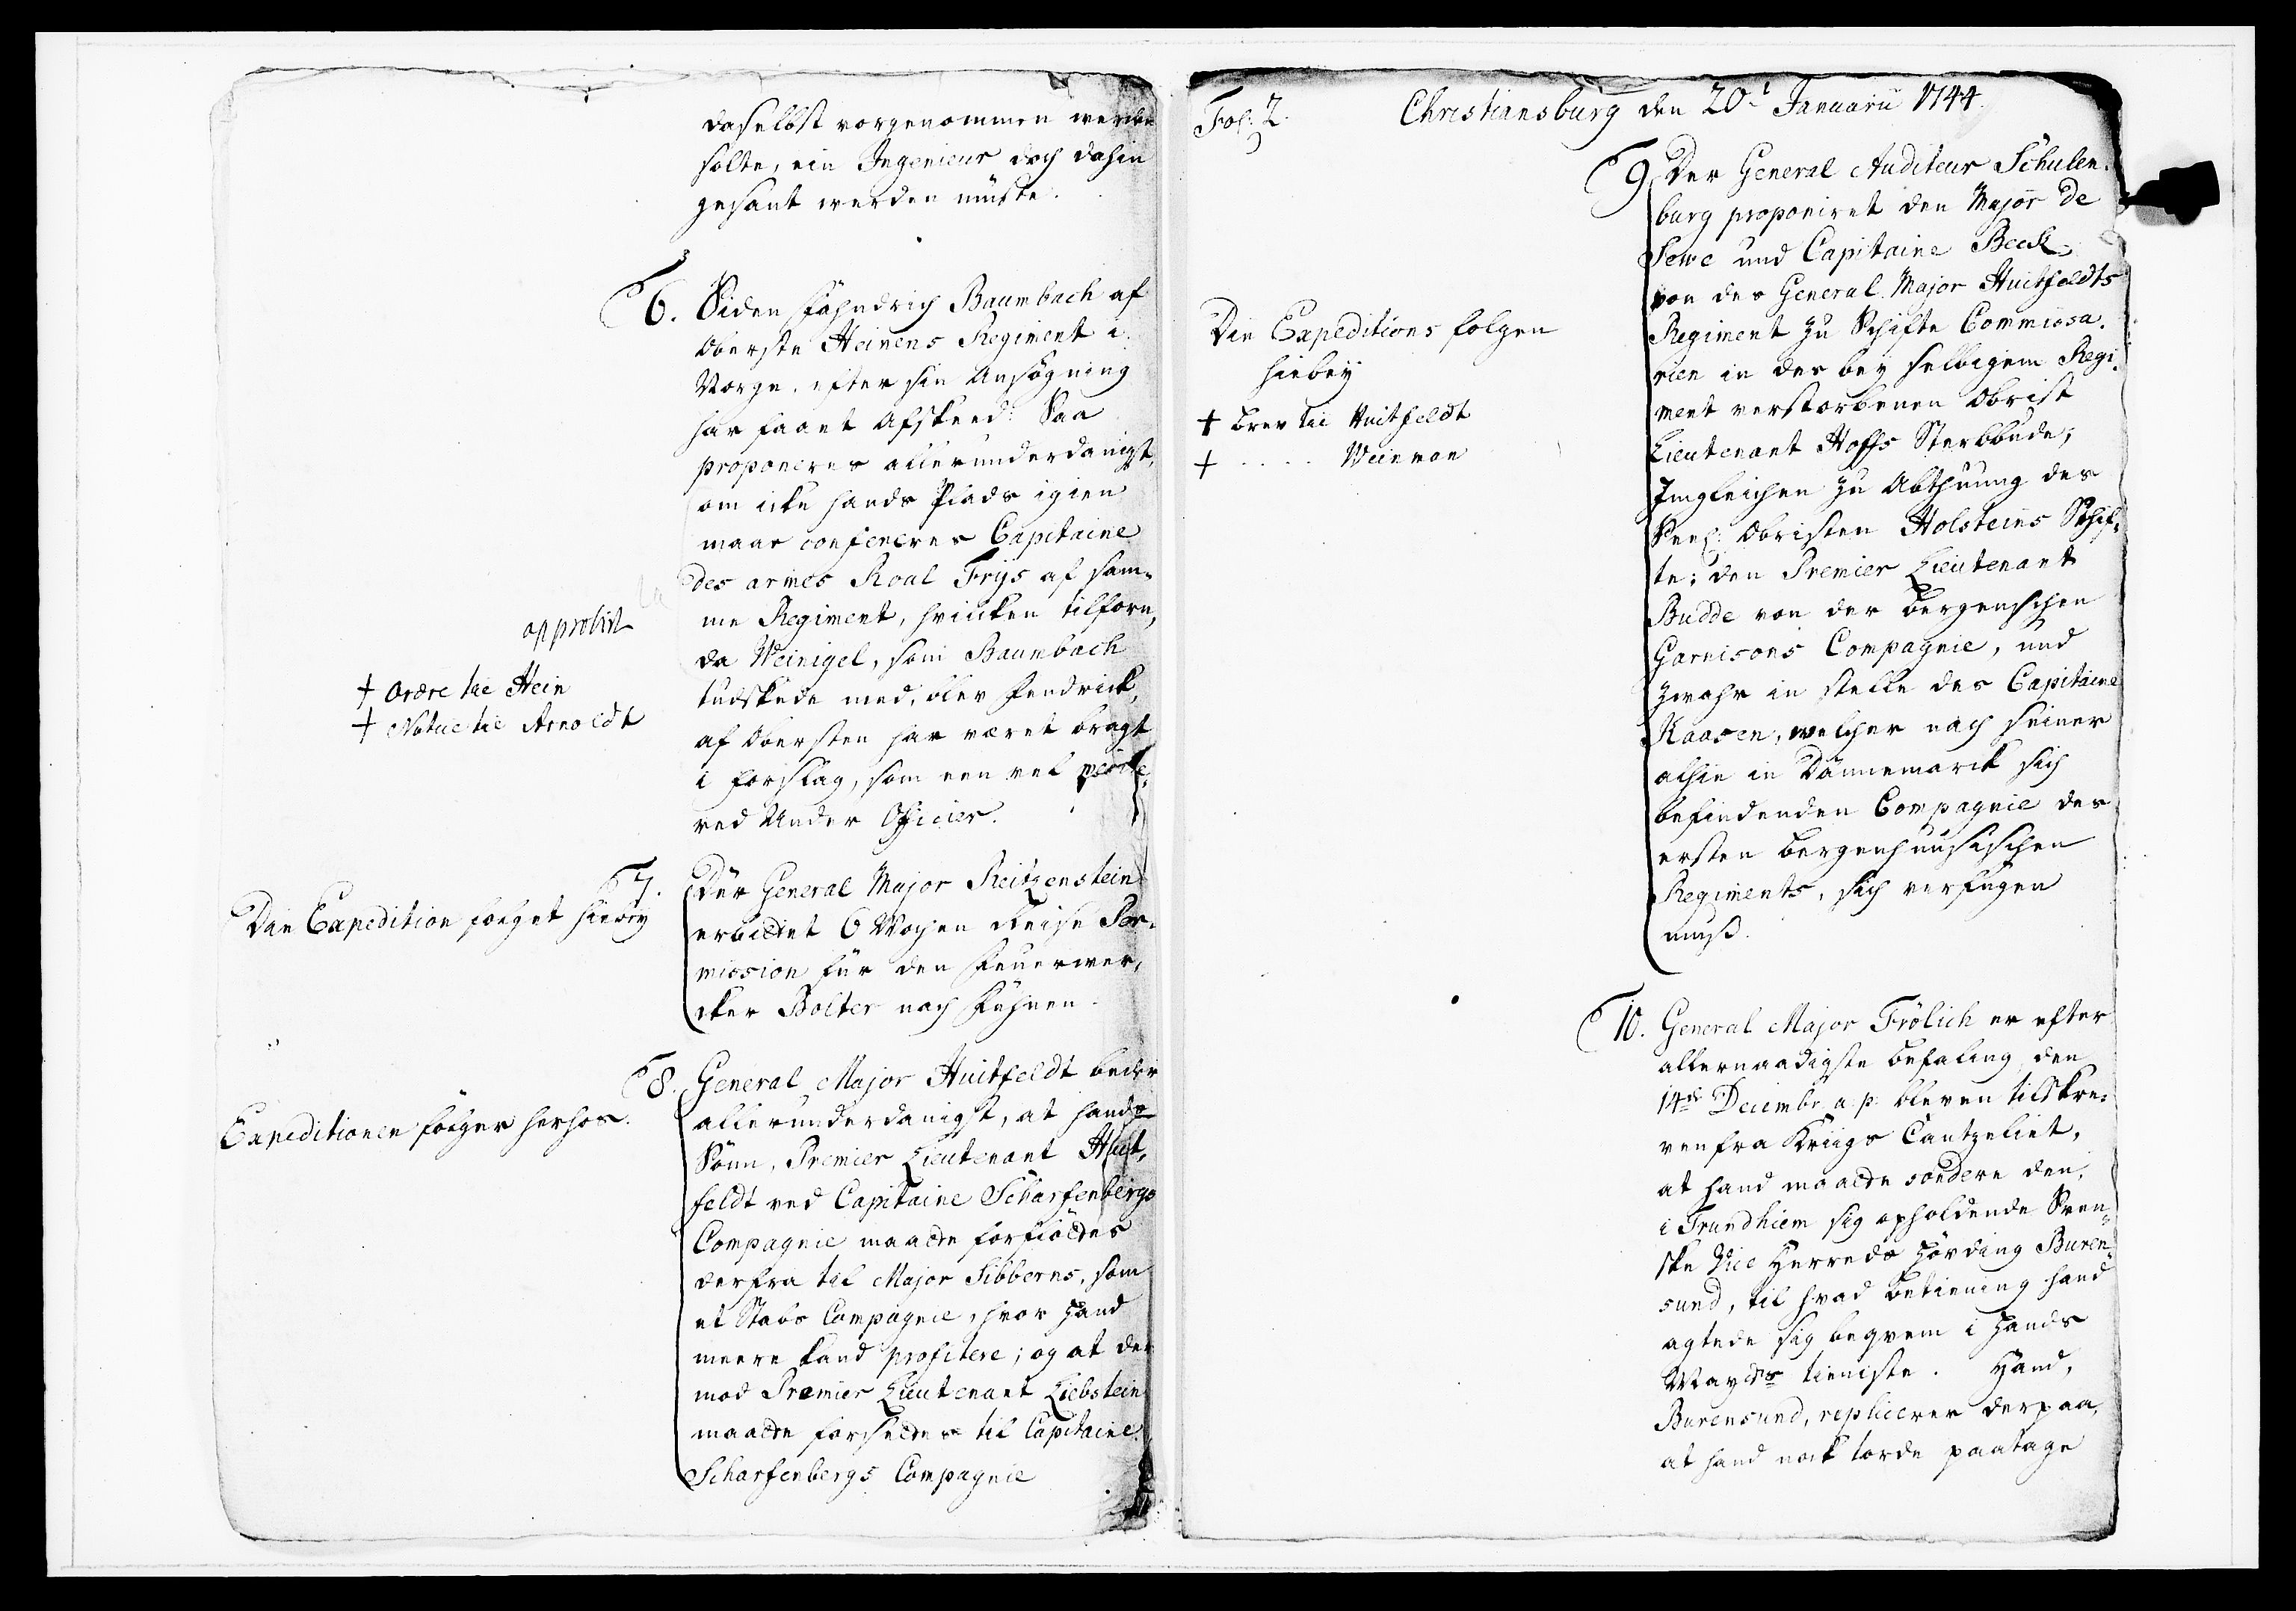 daselbst vorgenommen werden
solte, ein Ingenieur doch dahin
gesant werden müste.
6. Siden Fähndrich Baumbach af
Oberste Heinens Regiment i
Norge, efter sin Ansøgning
har faaet Afskeed: Saa
proponeres allerunderdanigst,
om icke hands Plads igien
maae confereres Capitaine
des armes Roal Frÿs af sam-
me Regiment, hvilcken tilforn,
da Weinigel, som Baumbach
tuskede med, blev Fendrick,
af Obersten har været bragt
i forslag, som een vel meri-
red Under Officier.
approbirt
† Ordre til Hein
† Notice til Arnoldt
7. Der General Major Reitzenstein
erbittet 6 Wochen Reise Per-
mission für den Feuerwer-
cker Bolter nach Fühnen.
Die Expedition folget hiebey
8. General Major Huitfeldt beder
allerunderdanigst, at hands
Sönn, Premier Lieutenant Huit-
feldt ved Capitaine Scharfenbergs
Compagnie maatte forflöttes
derfra til Major Sibberns, som
et Stabs Compagnie, hvor Hand
meere kand profitere; og at der
mod Premier Lieutenant Liebstein
maatte forsettes til Capitaine
Scharfenbergs Compagnie
Expeditionen fölger herhos.
Fol: 2.
Christiansburg den 20t Januarii 1744.
9. Der General Auditeur Schulen-
burg proponiret den Major de
Seue und Capitaine Beck
von des General Major Huitfeldts
Regiment zu Schifte Commissa-
rien in der bey selbigem Regi-
ment verstorbenen Obrist
Lieutenant Hoffs Sterbbude;
Imgleichen zu Abthuung des
Seel: Obristen Holsteins Schif-
te; den Premier Lieutenant
Budde von der Bergenschen
Garnisons Compagnie, und
zwahr in stelle des Capitaine
Kaasen, welcher nach seiner
alhie in Dännemarck sich
befindenden Compagnie des
ersten Bergenhuusischen
Regiments, sich verfugen
muß.
Die Expeditions folgen
hiebey
† brev til Huitfeldt
† . . . . .
10. General Major Frölich er efter
allernaadigste Befaling den
14de Decembr a: p: bleven tilskre-
ven fra Kriigs Cantzeliet,
at hand maatte sondere den,
i Trundhiem sig opholdende Sven-
ske Vice Herreds Höfding Buren-
sund, til hvad Betiening hand
agtede sig beqvem i Hands
Mayts tieniste. Hand,
Burensund, replicerer derpaa,
at hand nock torde paatage